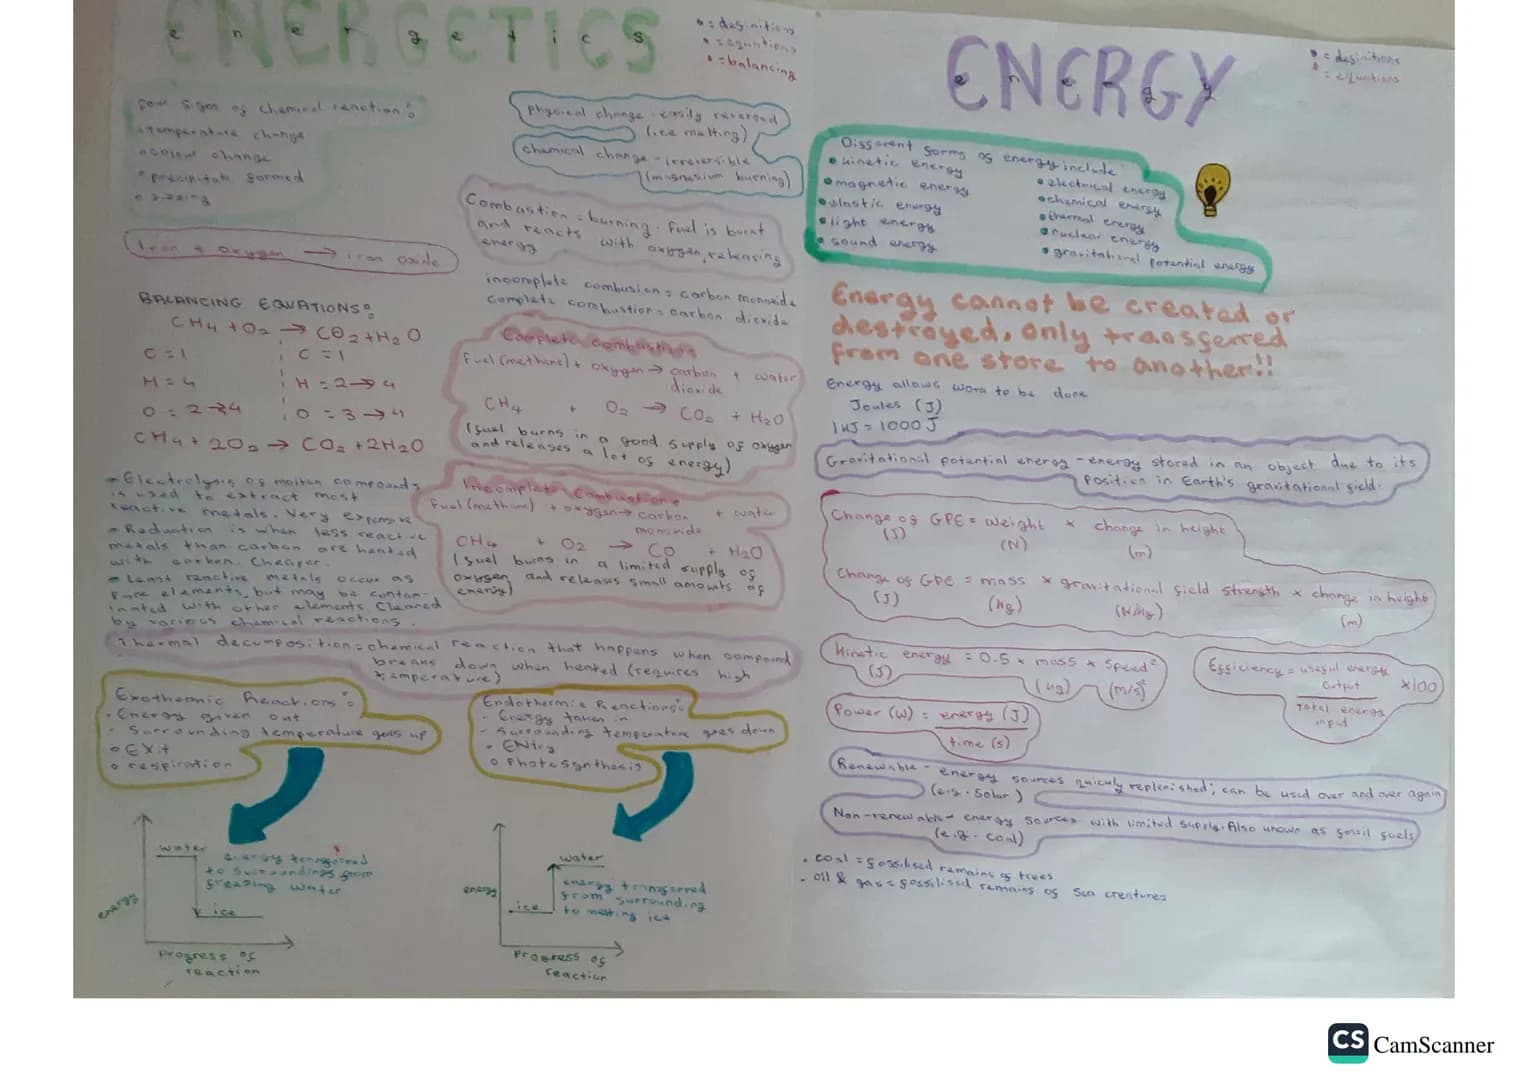 ENERGETICS
energetics
= definitions
= equations
= balancing
four signs of chemical reaction:
temperature change
colour change
precipitate formed
fizzing
Iron + oxygen → iron oxide
BALANCING EQUATIONS:
CH4 + O2 → CO2 + H2O
C = 1 C = 1
H = 4 H = 2 → 4
O = 2 → 4 O = 3 → 4
CH4 + 2O2 → CO2 + 2H2O
- Electrolysis of molten compounds
is used to extract most
reactive metals. Very expensive
- Reduction is when less reactive
metals than carbon are heated
with carbon. Cheaper.
- Least reactive metals occur as
pure elements, but may be contam-
inated with other elements. Cleaned
by various chemical reactions.
physical change - easily reversed
(ice melting)
chemical change - irreversible
(magnesium burning)
Combustion = burning. Fuel is burnt
and reacts with oxygen, releasing
energy
incomplete combusion = carbon monoxide
complete combustion = carbon dioxide
Complete Combustion
Fuel (methane) + oxygen → carbon + water
dioxide
CH4 + O2 → CO2 + H2O
(fuel burns in a good supply of oxygen
and releases a lot of energy)
Incomplete Combustion
Fuel (methane) + oxygen → carbon + water
monoxide
CH4 + O2 → CO + H2O
(fuel burns in a limited supply of
oxygen and releases small amounts of
energy)
Thermal decomposition = chemical reaction that happens when compound
breaks down when heated (requires high
temperature)
Exothermic Reactions:
- Energy given out
- Surrounding temperature goes up
EXit
respiration
Endothermic Reactions:
- Energy taken in
- Surrounding temperature goes down
ENtry
Photosynthesis
water
energy transferred
to surroundings from
freezing water
ice
energy
Progress of
reaction
water
energy transferred
from surrounding
to melting ice
ice
energy
Progress of
reaction
ENERGY
energy
= definitions
= equations
Different forms of energy include
kinetic energy
magnetic energy
elastic energy
light energy
sound energy
electrical energy
chemical energy
thermal energy
nuclear energy
gravitational potential energy
Energy cannot be created or
destroyed, only transferred
from one store to another!!
Energy allows work to be done
Joules (J)
1kJ = 1000J
Gravitational potential energy - energy stored in an object due to its
position in Earth's gravitational field.
Change of GPE = weight × change in height
(J) (N) (m)
Change of GPE = mass × gravitational field strength × change in height
(J) (kg) (N/kg) (m)
Kinetic energy = 0.5 × mass × speed²
(J) (kg) (m/s)²
Efficiency = useful energy
output
×100
Total energy
input
Power (W) = energy (J)
time (s)
Renewable - energy sources quickly replenished; can be used over and over again
(e.g. Solar)
Non-renewable - energy sources with limited supply. Also known as fossil fuels
(e.g. coal)
. coal = fossilised remains of trees
. oil & gas = fossilised remains of sea creatures
CS CamScanner